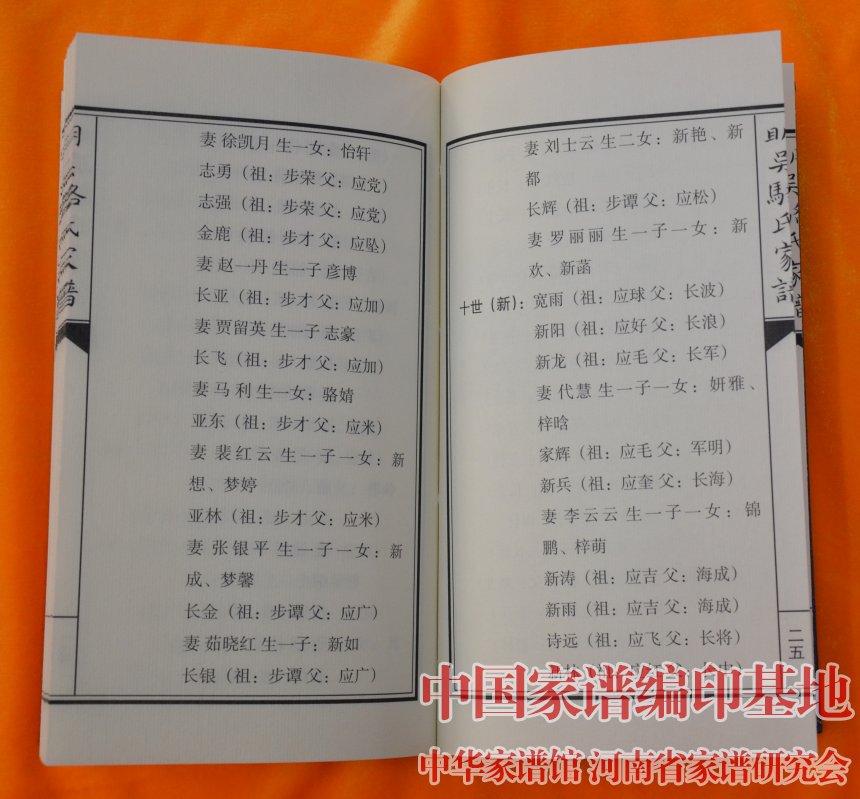 妻 徐凯月 生一女：怡轩
志勇（祖：步荣 父：应党）
志强（祖：步荣 父：应党）
金鹿（祖：步才 父：应坠）
妻 赵一丹 生一子 彦博
长亚（祖：步才 父：应加）
妻 贾留英 生一子 志豪
长飞（祖：步才 父：应加）
妻 马 利 生一女：骆婧
亚东（祖：步才 父：应米）
妻 裴红云 生一子一女：新
想、梦婷
亚林（祖：步才 父：应米）
妻 张银平 生一子一女：新
成、梦馨
长金（祖：步谭 父：应广）
妻 茹晓红 生一子：新如
长银（祖：步谭 父：应广）
妻 刘士云 生二女：新艳、新
都
长辉（祖：步谭 父：应松）
妻 罗丽丽 生一子一女：新
欢、新菡
十世（新）：宽雨（祖：应球 父：长波）
新阳（祖：应好 父：长浪）
新龙（祖：应毛 父：长军）
妻 代慧 生一子一女：妍雅、
梓晗
家辉（祖：应毛 父：军明）
新兵（祖：应奎 父：长海）
妻 李云云 生一子一女：锦
鹏、梓萌
新涛（祖：应吉 父：海成）
新雨（祖：应吉 父：海成）
诗远（祖：应飞 父：长将）
二五
中国家谱编印基地
中华家谱馆 河南省家谱研究会